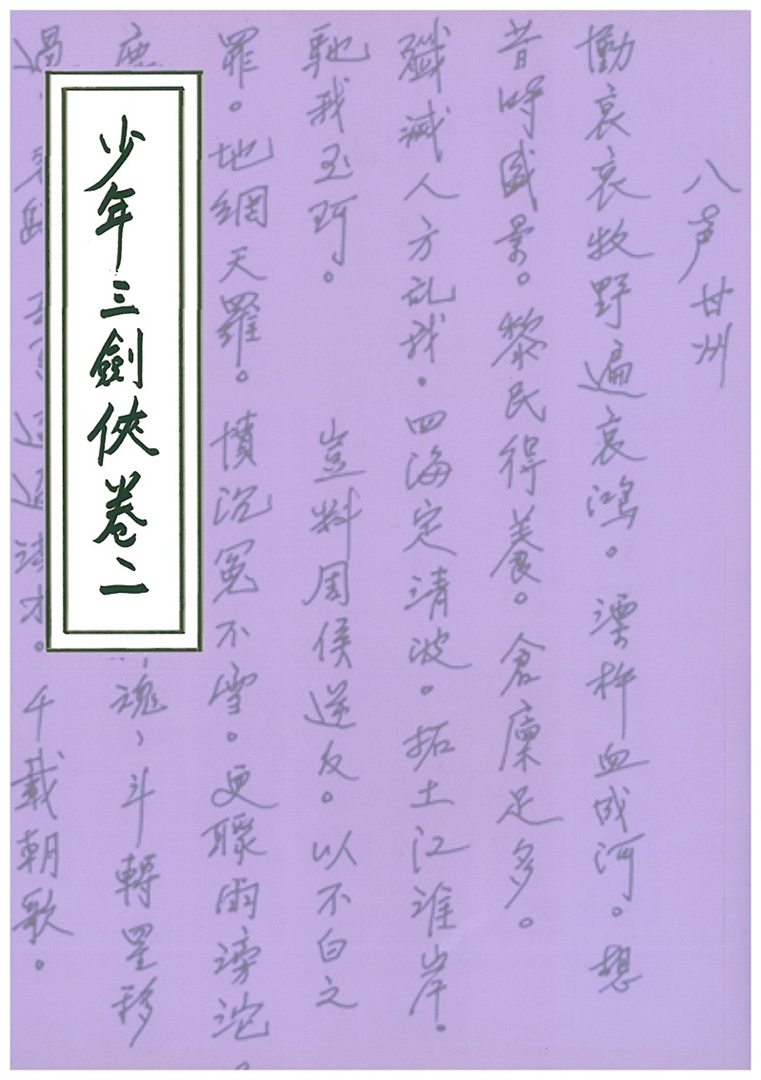 少年三劍俠卷二
八声甘州
慟哀哀牧野遍哀鴻。漂杵血成河。想
昔時盛景。黎民得養。倉廩足多。
殲滅人方乱我。四海定靖波。拓土江淮岸。
馳我玉珂。 豈料周侯逆反。以不白之
罪。地網天羅。憤沉冤不雪。更聽雨滂沱。
魂，斗轉星移
千載朝歌。